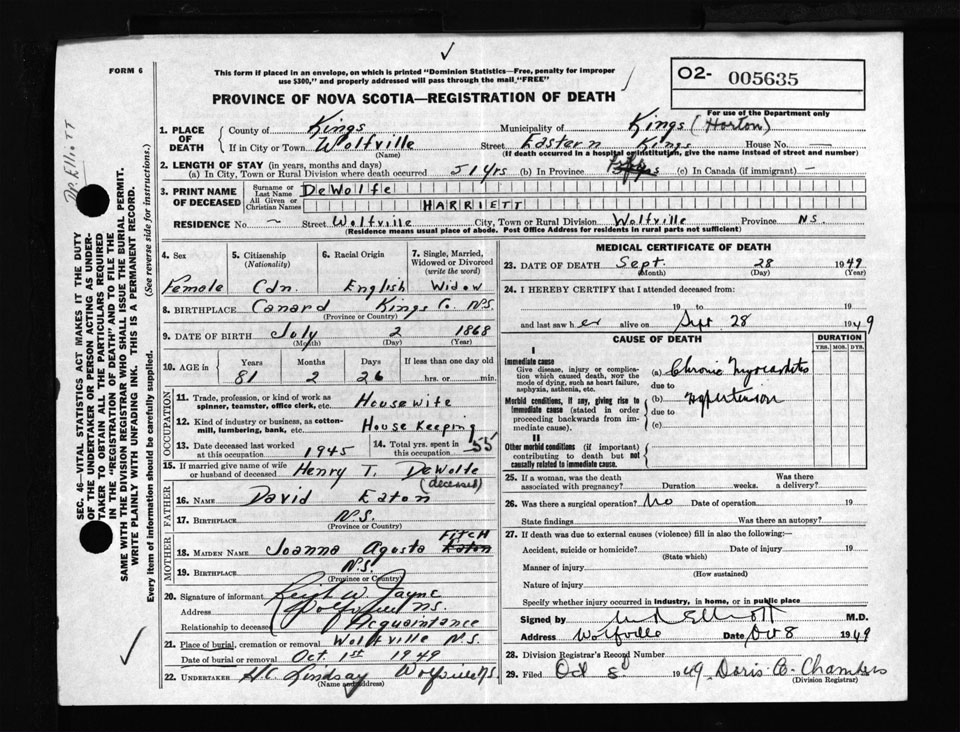 FORM 6
This form if placed in an envelope, on which is printed "Dominion Statistics—Free, penalty for improper
use $300," and properly addressed will pass through the mail "FREE"
O2- 005635
For use of the Department only
PROVINCE OF NOVA SCOTIA—REGISTRATION OF DEATH
Dr. Elliott
SEC. 46—VITAL STATISTICS ACT MAKES IT THE DUTY
OF THE UNDERTAKER OR PERSON ACTING AS UNDER-
TAKER TO OBTAIN ALL THE PARTICULARS REQUIRED
IN THE "REGISTRATION OF DEATH" AND TO FILE THE
SAME WITH THE DIVISION REGISTRAR WHO SHALL ISSUE THE BURIAL PERMIT.
WRITE PLAINLY WITH UNFADING INK. THIS IS A PERMANENT RECORD.
Every item of information should be carefully supplied. (See reverse side for instructions.)
1. PLACE OF DEATH County of Kings Municipality of Kings (Horton)
If in City or Town Wolfville (Name) Street Eastern Kings House No. —
(If death occurred in a hospital or institution, give the name instead of street and number)
2. LENGTH OF STAY (in years, months and days)
(a) In City, Town or Rural Division where death occurred 51 yrs (b) In Province (c) In Canada (if immigrant) —
3. PRINT NAME OF DECEASED Surname or Last Name DeWolfe
All Given or Christian Names HARRIETT
RESIDENCE No. ~ Street Wolfville City, Town or Rural Division Wolfville Province N.S.
(Residence means usual place of abode. Post Office Address for residents in rural parts not sufficient)
4. Sex Female
5. Citizenship (Nationality) Cdn.
6. Racial Origin English
7. Single, Married, Widowed or Divorced (write the word) Widow
8. BIRTHPLACE Canard Kings Co. N.S.
(Province or Country)
9. DATE OF BIRTH July 2 1868
(Month) (Day) (Year)
10. AGE in Years 81 Months 2 Days 26 If less than one day old hrs. or min.
OCCUPATION
11. Trade, profession, or kind of work as spinner, teamster, office clerk, etc. Housewife
12. Kind of industry or business, as cotton-mill, lumbering, bank, etc. House Keeping
13. Date deceased last worked at this occupation 1945 14. Total yrs. spent in this occupation 55
15. If married give name of wife or husband of deceased Henry T. DeWolfe
(deceased)
FATHER
16. NAME David Eaton
17. BIRTHPLACE N.S.
(Province or Country)
MOTHER
18. MAIDEN NAME Joanna Agusta Eaton FITCH
19. BIRTHPLACE N.S.
(Province or Country)
20. Signature of informant Leigh W. Jayne
Address Wolfville N.S.
Relationship to deceased Acquaintance
21. Place of burial, cremation or removal Wolfville N.S.
Date of burial or removal Oct. 1st 1949
22. UNDERTAKER H.C. Lindsay Wolfville N.S.
(Name and address)
MEDICAL CERTIFICATE OF DEATH
23. DATE OF DEATH Sept. 28 1949
(Month) (Day) (Year)
24. I HEREBY CERTIFY that I attended deceased from:
19 to 19
and last saw her alive on Sept 28 1949
CAUSE OF DEATH
DURATION
YRS. MOS. DYS.
I
Immediate cause
Give disease, injury or complica-
tion which caused death, NOT the
mode of dying, such as heart failure,
asphyxia, asthenia, etc.
(a) Chronic Myocarditis
due to
Morbid conditions, if any, giving rise to
immediate cause (stated in order
proceeding backwards from im-
mediate cause).
(b) Hypertension
due to
(c)
II
Other morbid conditions (if important)
contributing to death but not
causally related to immediate cause.
25. If a woman, was the death associated with pregnancy? Duration weeks. Was there a delivery?
26. Was there a surgical operation? No Date of operation 19
State findings Was there an autopsy?
27. If death was due to external causes (violence) fill in also the following:—
Accident, suicide or homicide? (State which) Date of injury 19
Manner of injury
(How sustained)
Nature of injury
Specify whether injury occurred in industry, in home, or in public place
Signed by Elliott M.D.
Address Wolfville Date Oct 8 1949
28. Division Registrar's Record Number
29. Filed Oct 8 1949 Doris C. Chambers
(Division Registrar)